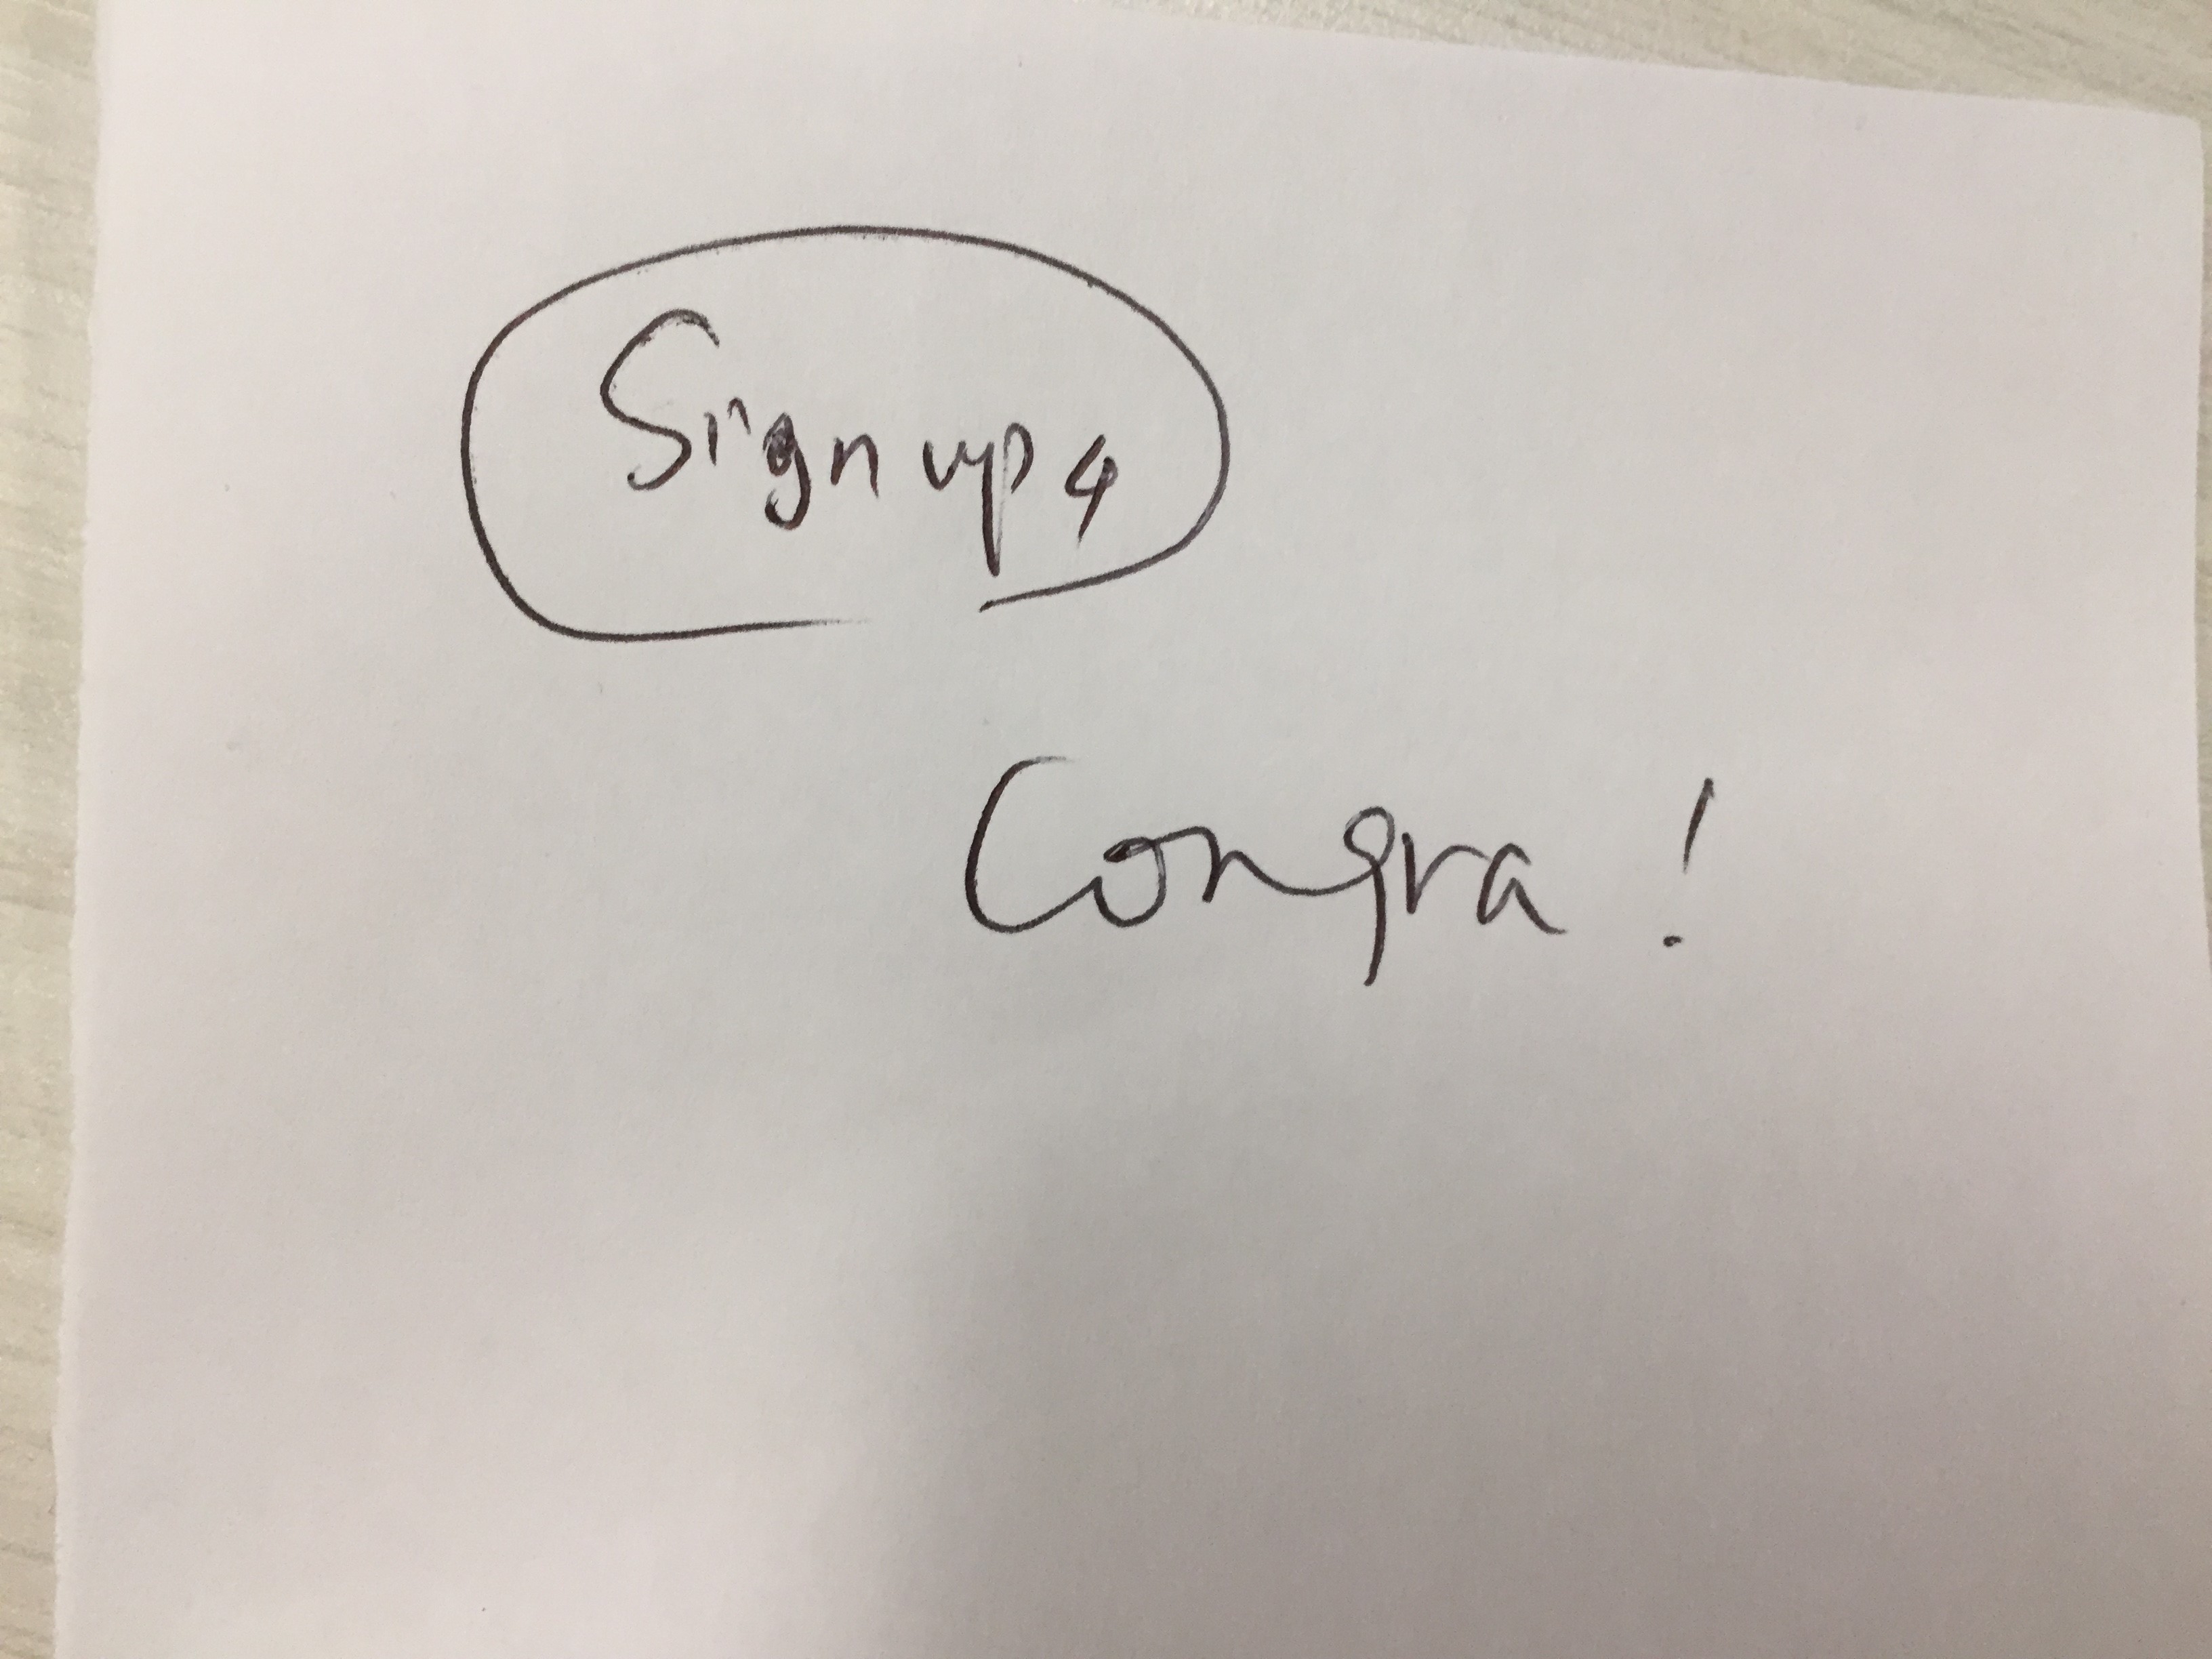 Signup4
Congra!